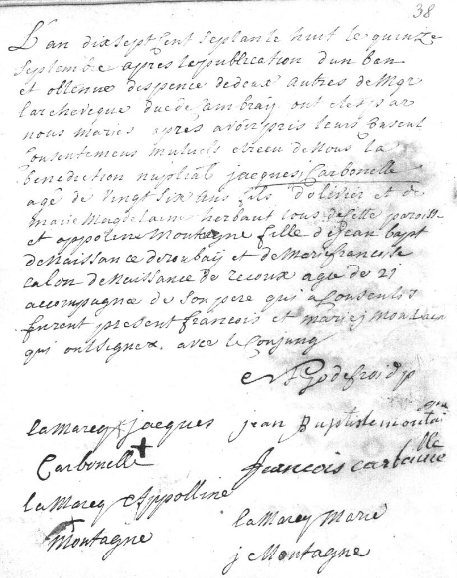 38
L'an dix sept cent septante huit le quinze
septembre apres le publication d'un ban
et obtenue despence de deux autres de Mgr
l'archeveque duc de Cambray ont etes par
nous mariés apres avoir pris leurs
Consentemens mutuels et recu de Nous la
benediction nuptial jacques Carbonelle
agé de vingt six ans fils d'olivier et de
marie Magdelaine herbaut tous de cette paroisse
et appoline Montagne fille de jean bapt
de Naissance de roubaÿ et de Marie francoise
Calon de Naissance de recoux agé de 21
accompagné de Son pere qui a Consentis
furent present francois et marie j Montagne
qui ont signéz avec le Conjung
Godefroid
la Marcq + jacques
Carbonelle
jean Baptiste montai
gne
francois carbonelle
la Marcq Appolline
Montagne
la Marcq Marie
j Montagne